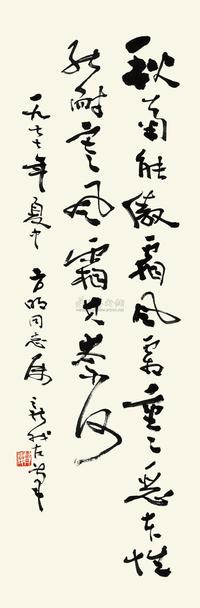 秋菊能傲霜风霜重重恶本性
能耐寒风霜其奈何
一九七七年夏中 方明同志属 新我左笔